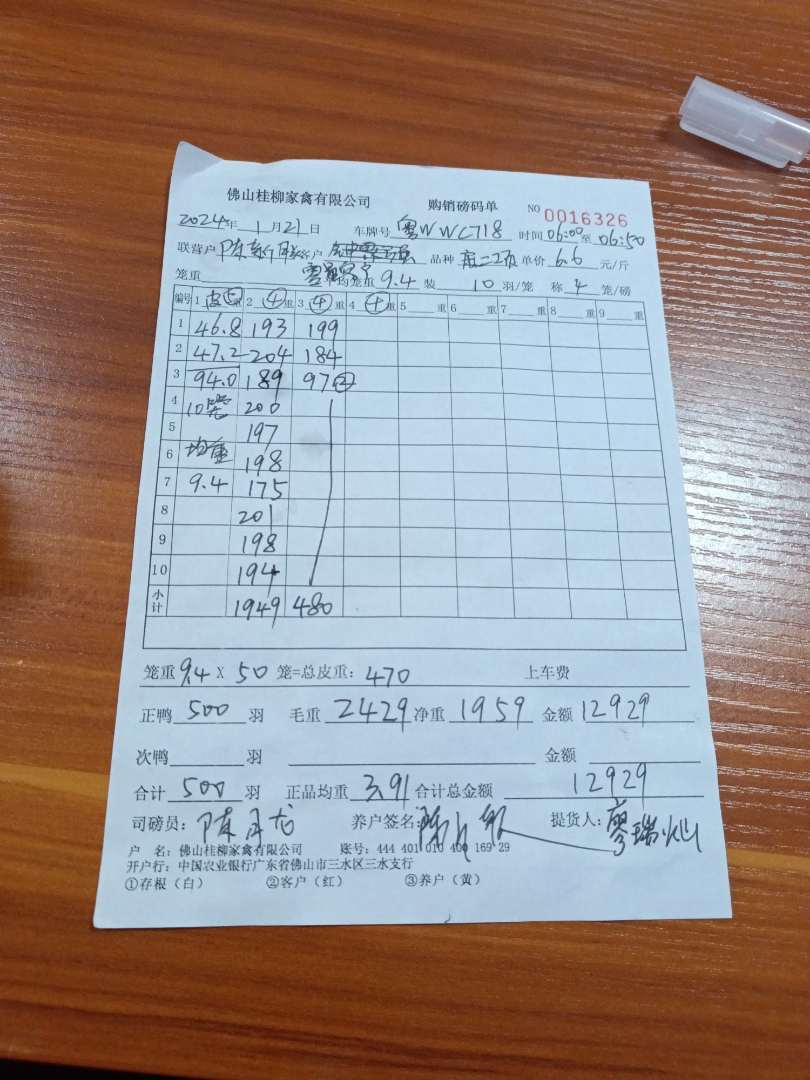 佛山桂柳家禽有限公司 购销磅码单 NO 0016326
2024年 1月21日 车牌号 粤WWC718 时间 06:00至 06:50
联营户 陈 客户 品种 单价 6.6 元/斤
笼重 均笼重 9.4 装 10 羽/笼 称 4 笼/磅
编号 1 皮⑤重 2 ④重 3 ④重 4 ④重 5 重 6 重 7 重 8 重 9 重
1 46.8 193 199
2 47.2 204 184
3 94.0 189 97②
4 10笼 200
5 197
6 均重 198
7 9.4 175
8 201
9 198
10 194
小计 1949 480
笼重 9.4 X 50 笼=总皮重: 470 上车费
正鸭 500 羽 毛重 2429 净重 1959 金额 12929
次鸭 羽 金额
合计 500 羽 正品均重 3.91 合计总金额 12929
司磅员: 陈月龙 养户签名: 陈 提货人: 廖瑞灿
户 名: 佛山桂柳家禽有限公司 账号: 444 401 010 400 169 29
开户行: 中国农业银行广东省佛山市三水区三水支行
①存根（白） ②客户（红） ③养户（黄）